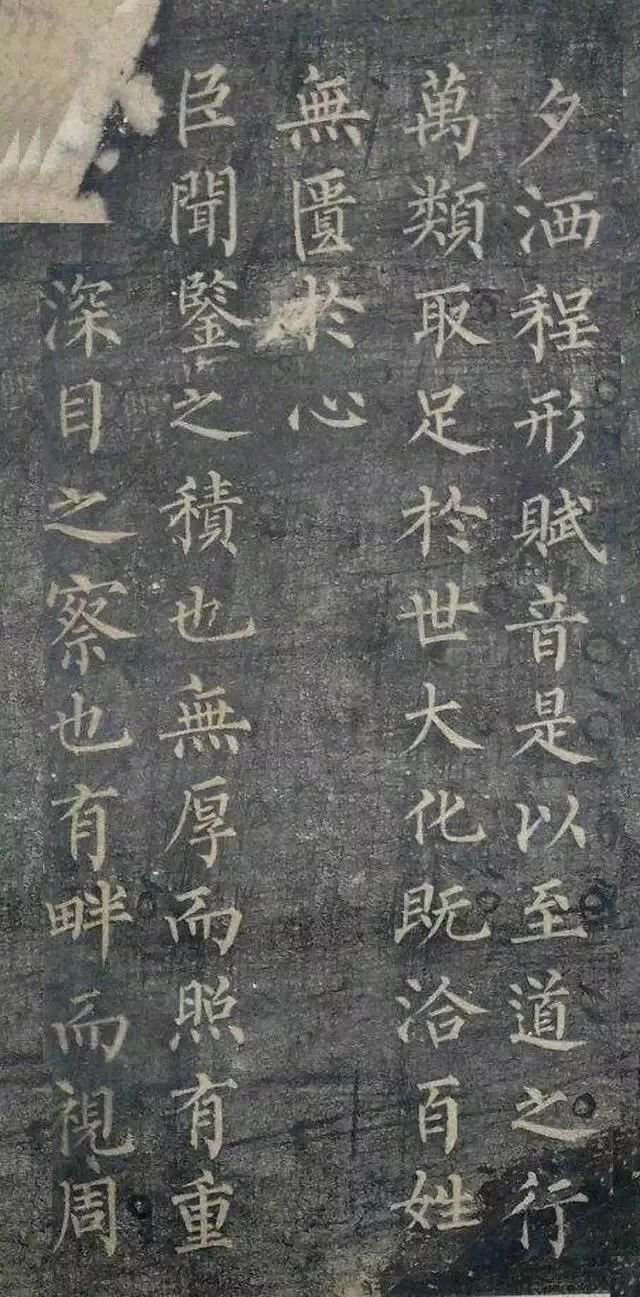 夕洒程形賦音是以至道之行
萬類取足於世大化既洽百姓
無匱於心
臣聞鑒之積也無厚而照有重
深目之察也有畔而視周